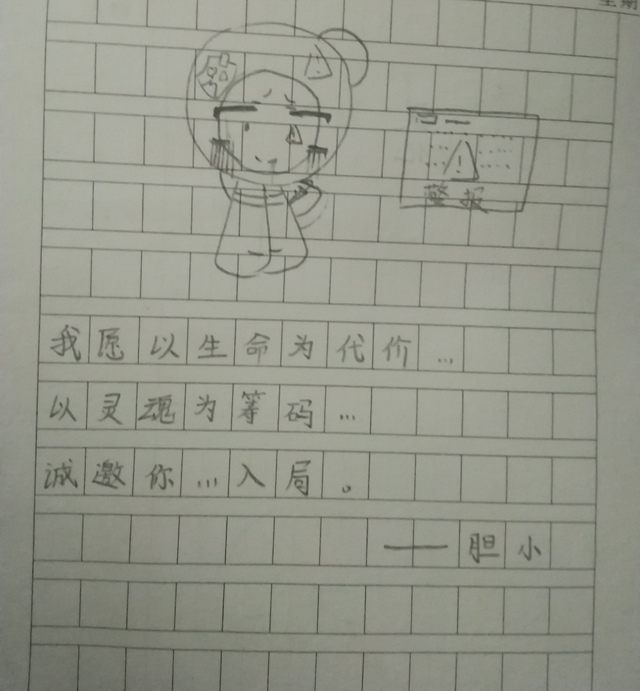 警报
我愿以生命为代价…
以灵魂为筹码…
诚邀你…入局。
——胆小